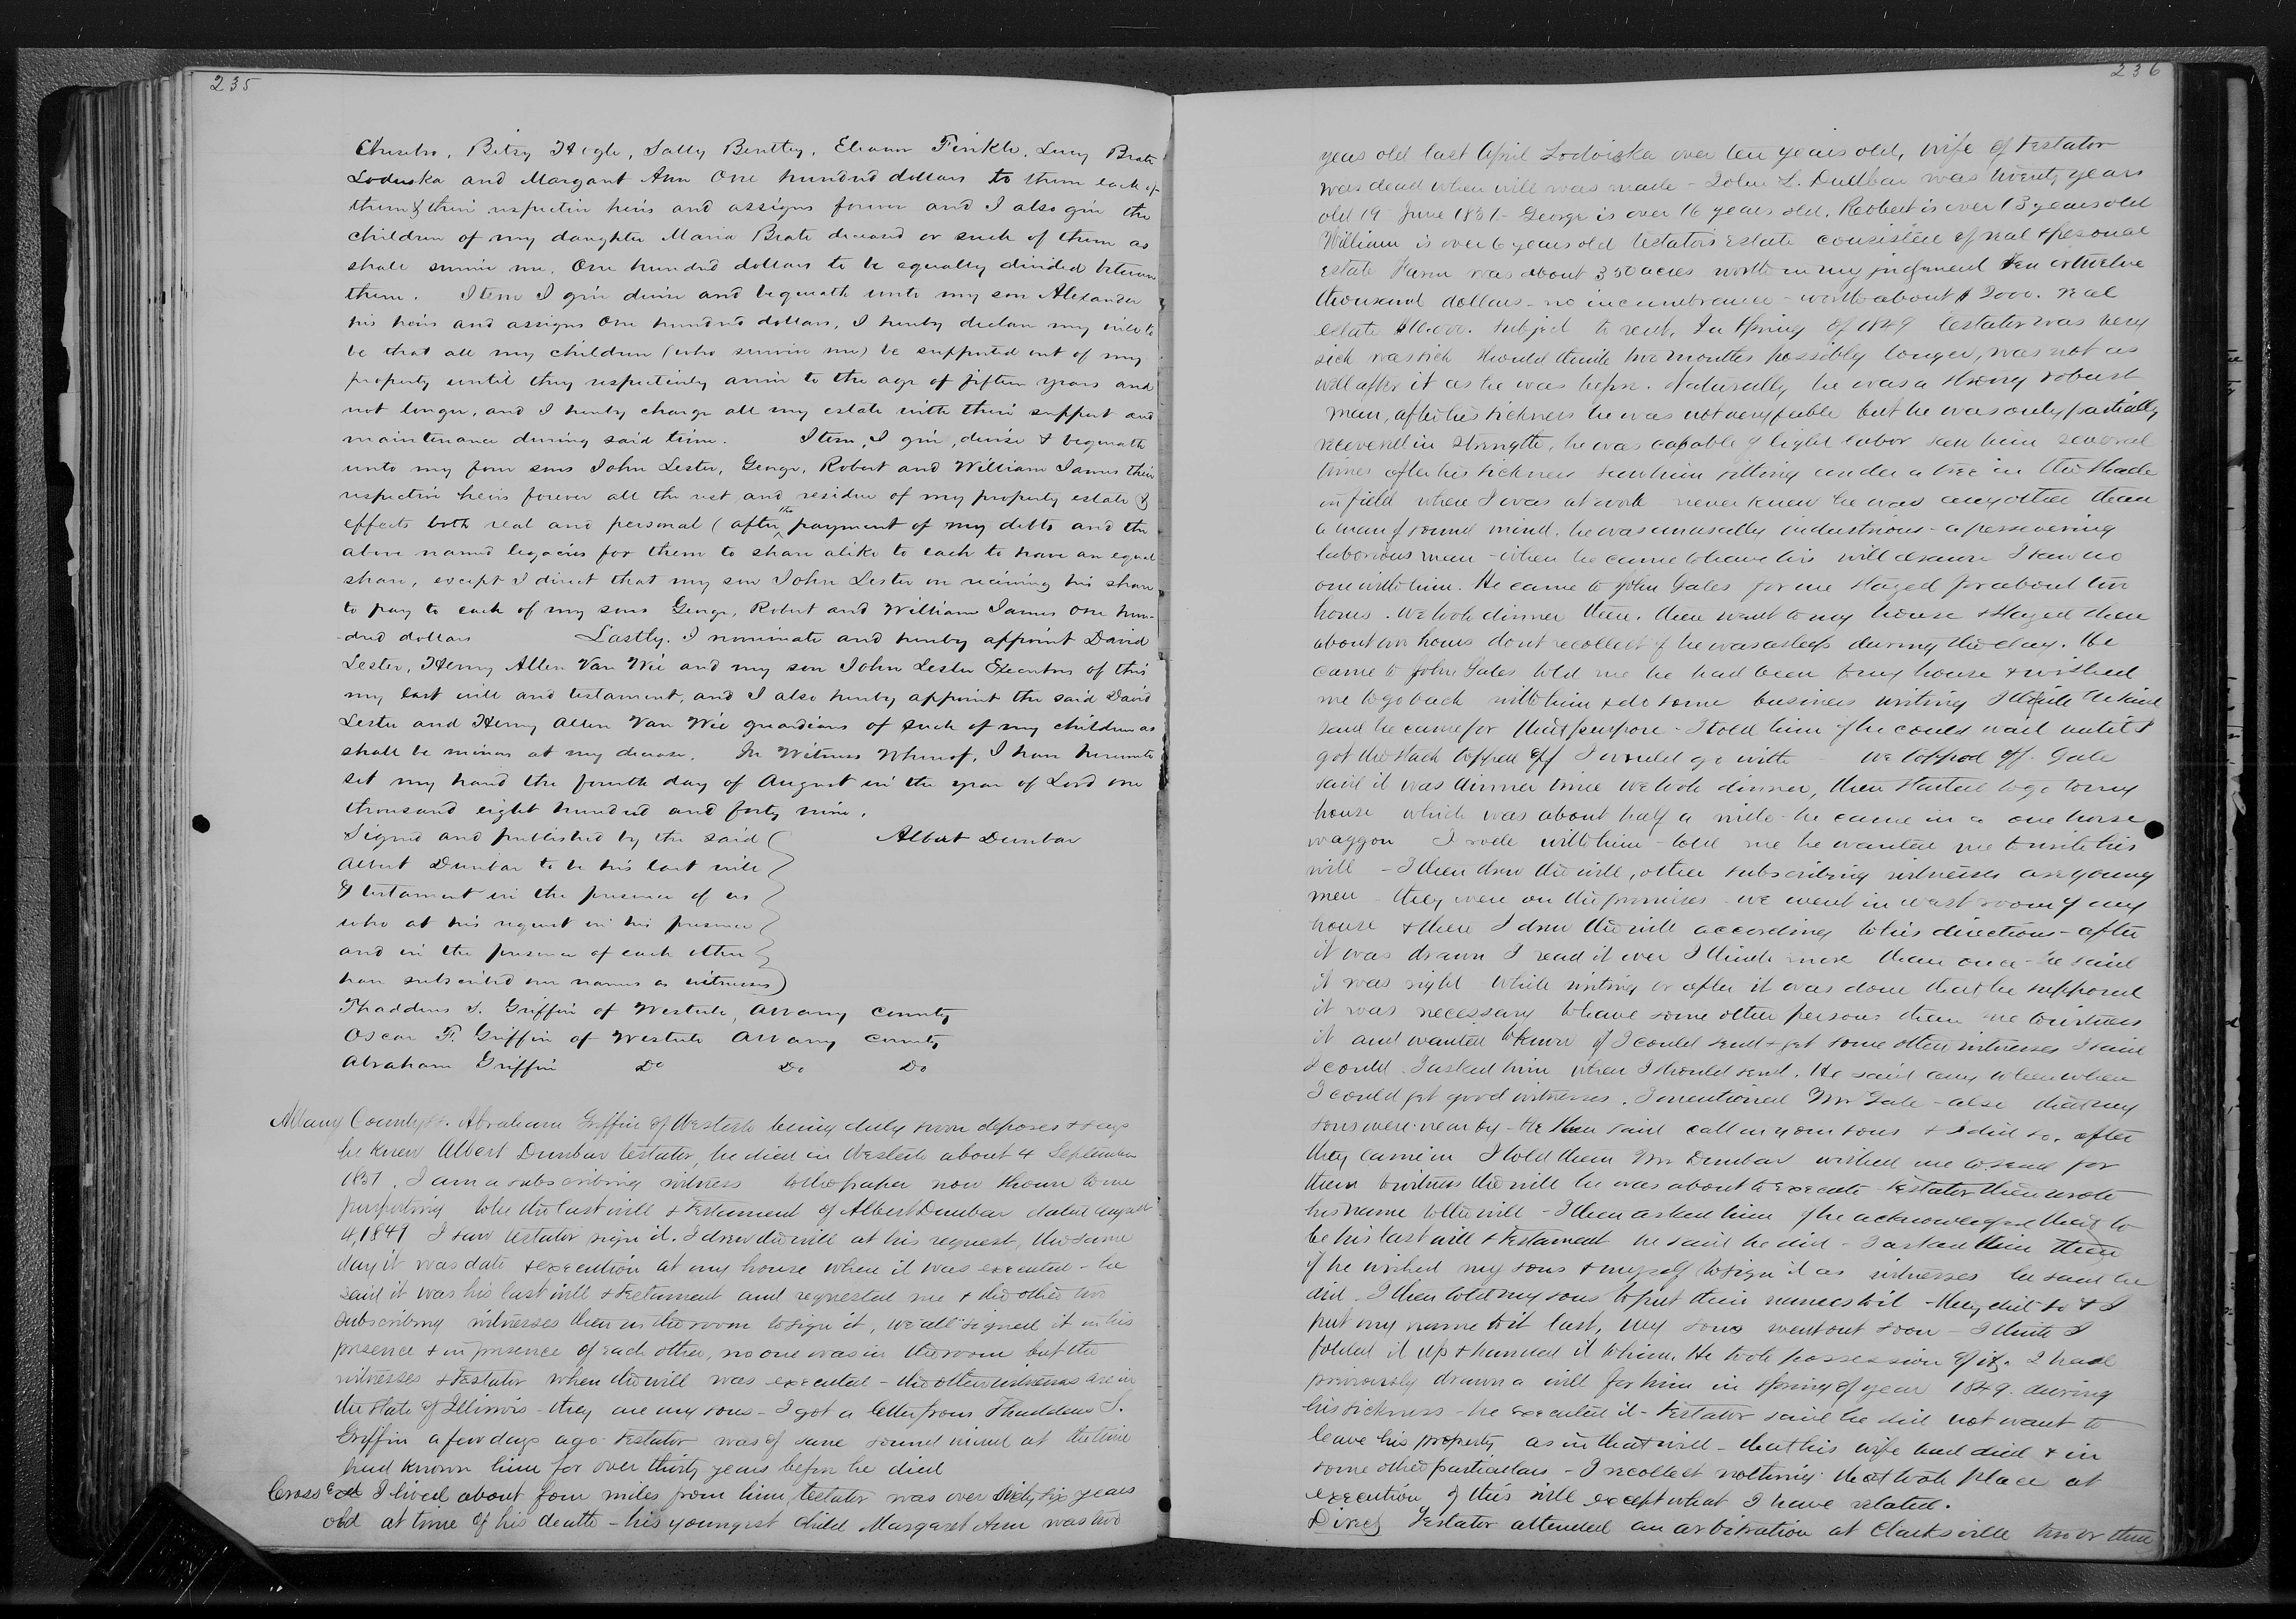 235
Chesebro, Bitsy Hogle, Sally Bentley, Eleanor Finkle, Lucy Brate
Loduska and Margaret Ann One hundred dollars to them each of
them & their respective heirs and assigns forever and I also give the
children of my daughter Maria Brate deceased or such of them as
shall survive me, One hundred dollars to be equally divided between
them. Item I give devise and bequeath unto my son Alexander
his heirs and assigns One hundred dollars, I hereby declare my will to
be that all my children (who survive me) be supported out of my
property until they respectively arrive to the age of fifteen years and
not longer, and I hereby charge all my estate with their support and
maintenance during said time. Item, I give, devise & bequeath
unto my four sons John Lester, George, Robert and William James their
respective heirs forever all the rest and residue of my property estate &
effects both real and personal (after the payment of my debts and the
above named legacies for them to share alike to each to have an equal
share, except I direct that my son John Lester on receiving his share
to pay to each of my sons George, Robert and William James one hun-
-dred dollars Lastly. I nominate and hereby appoint David
Lester, Henry Allen Van Wie and my son John Lester Executors of this
my last will and testament, and I also hereby appoint the said David
Lester and Henry Allen Van Wie guardians of such of my children as
shall be minors at my decease. In Witness Whereof, I have hereunto
set my hand the fourth day of August in the year of Lord one
thousand eight hundred and forty nine.
Signed and published by the said ( Albert Dunbar
Albert Dunbar to be his last will
& testament in the presence of us
who at his request in his presence
and in the presence of each other
have subscribed our names as witnesses)
Thaddeus S. Griffin of Westerlo, Albany County
Oscar F. Griffin of Westerlo Albany County
Abraham Griffin Do Do Do
Albany County ss. Abraham Griffin of Westerlo being duly sworn deposes & says
he knew Albert Dunbar testator, he died in Westerlo about 4 September
1851, I am a subscribing witness to the paper now shown to me
purporting to be the last will & testament of Albert Dunbar dated August
4, 1849 I saw testator sign it. I drew the will at his request, the same
day it was date & execution at my house when it was executed - he
said it was his last will & testament and requested me & the other two
subscribing witnesses then in the room to sign it, we all signed it in his
presence & in presence of each other, no one was in the room but the
witnesses & testator when the will was executed - the other witnesses are in
the State of Illinois - they are my sons - I got a letter from Thaddeus S.
Griffin a few days ago testator was of sane sound mind at the time
had known him for over thirty years before he died
Cross Exd I lived about four miles from him, testator was over sixty six years
old at time of his death - his youngest child Margaret Ann was two
236
years old last April Lodoiska over ten years old, wife of testator
was dead when will was made - John L. Dunbar was twenty years
old 19 June 1851 - George is over 16 years old. Robert is over 13 years old
William is over 6 years old testators estate consisted of real & personal
estate Farm was about 350 acres worth in my judgment ten or twelve
thousand dollars - no incumbrance - worth about $2000. real
estate $10,000. subject to rent. In Spring of 1849 testator was very
sick was sick should think two months possibly longer, was not as
well after it as he was before. Naturally he was a strong robust
man, after his sickness he was not very feeble but he was only partially
recovered in strength, he was capable of light labor saw him several
times after his sickness saw him sitting under a tree in the shade
in field where I was at work never knew he was any other than
a man of sound mind. he was unusually industrious - a persevering
laborious man - when he came to have his will drawn I saw no
one with him. He came to John Gales for me stayed for about two
hours. We took dinner there, then went to my house & stayed there
about two hours do not recollect if he was asleep during the day. He
came to John Gales told me he had been to my house & wished
me to go back with him & do some business writing I think he said
said he came for that purpose - I told him if he could wait until I
got the stack topped off I would go with - We topped off. Gale
said it was dinner time we took dinner, then started to go to my
house which was about half a mile - he came in a one horse
waggon I rode with him - told me he wanted me to write his
will - I then drew the will, other subscribing witnesses are young
men - they were on the premises - we went in west room of my
house & there I drew the will according to his directions - after
it was drawn I read it over I think more than once - he said
it was right while writing or after it was done that he supposed
it was necessary to have some other persons than me to witness
it and wanted to know if I could send & get some other witnesses I said
I could. I asked him when I should send. He said any where when
I could get good witnesses. I mentioned Mr Gale - also that my
sons were near by - He then said call in your sons & I did so. after
they came in I told them Mr Dunbar wished me to send for
them to witness the will he was about to execute - testator then wrote
his name to the will - I then asked him if he acknowledged that to
be his last will & testament he said he did - I asked him then
if he wished my sons & myself to sign it as witnesses he said he
did. I then told my sons to put their names to it - they did so & I
put my name to it last, my sons went out soon - I think I
folded it up & handed it to him. He took possession of it. I had
previously drawn a will for him in Spring of year 1849. during
his sickness - he executed it - testator said he did not want to
leave his property as in that will - that his wife had died & in
some other particulars - I recollect nothing that took place at
execution of this will except what I have related.
Direct Testator attended an arbitration at Clarksville two or three